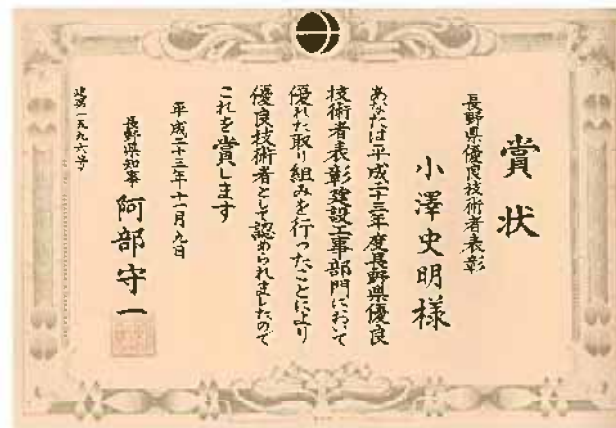 賞状
長野県優良技術者表彰
小澤史明様
あなたは平成二十三年度長野県優良
技術者表彰建設工事部門において
優れた取り組みを行ったことにより
優良技術者として認められましたので
これを賞します
平成二十三年十一月九日
長野県知事 阿部守一